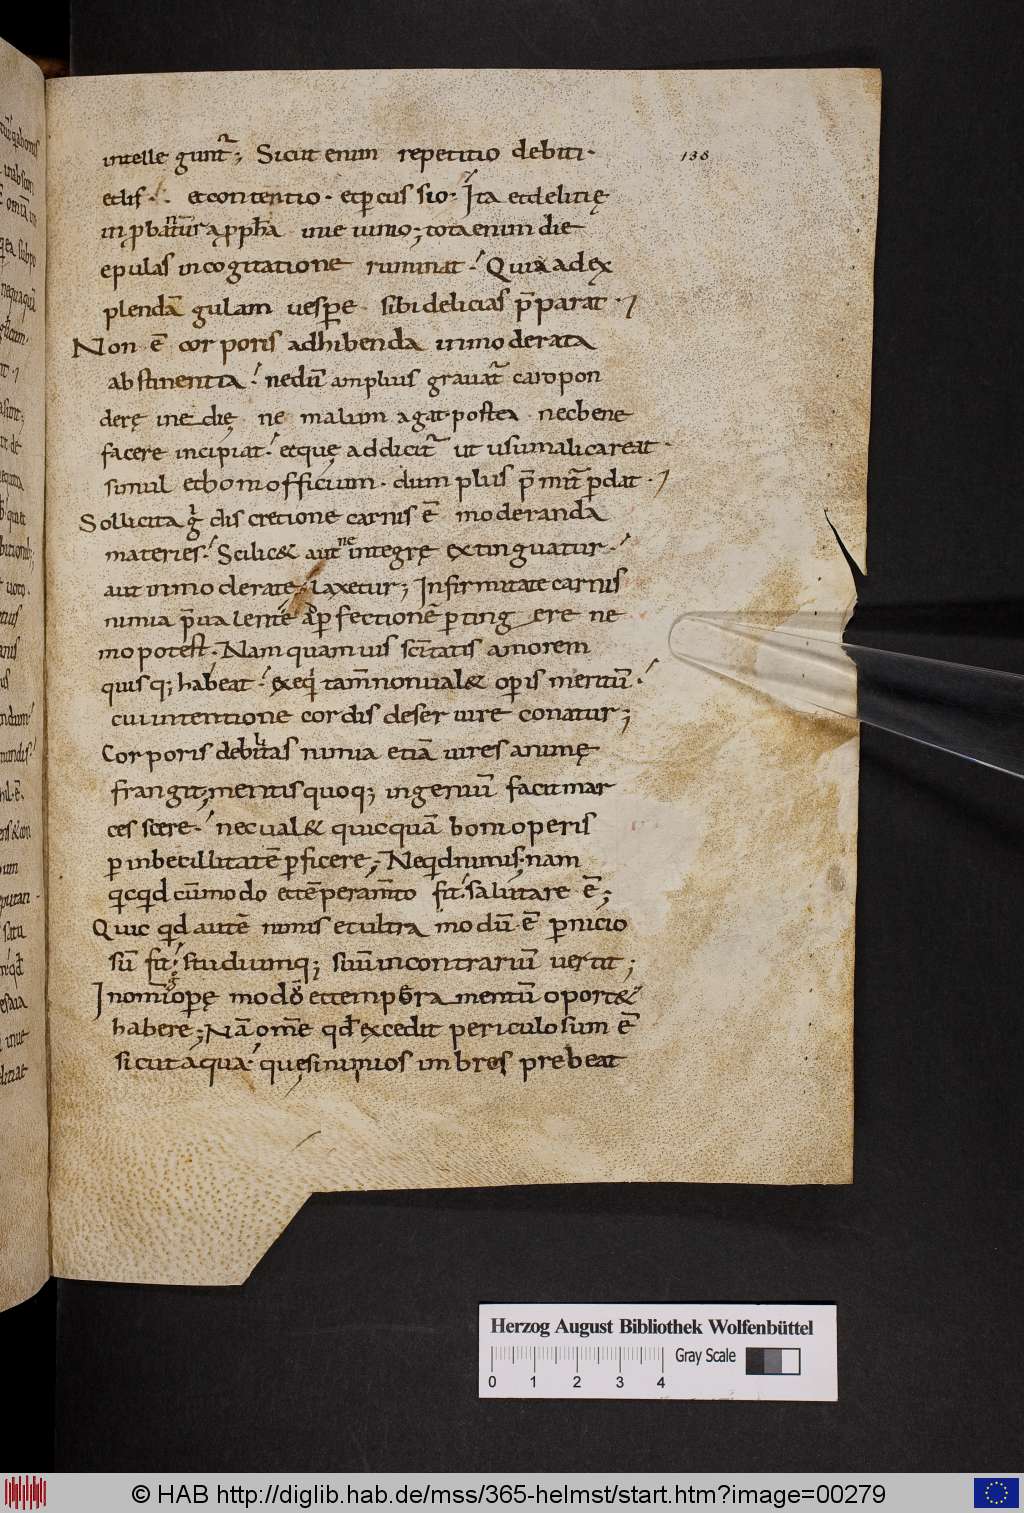 138
intelle guntʳ; Sicut enim repetitio debiti·
et lis·/. et contentio· et ꝑcussio· Ita et delitię
inꝓbantur a ꝓph̄a inieiunio; tota enim die
epulas incogitatione ruminat·/ Quia adex
plendā gulam vesꝑe sibi delicias p̄parat·
Non ē corporis adhibenda inmoderata
abstinentia·/ nedū amplius grauatʳ caro pon
derę inedię ne malum agat postea necbene
facere incipiat·/ et quę addicitʳ ut usumali careat·
simul et boni officium· dum plus p̄mitʳ ꝑdat·
Sollicita gͥ discretione carnis ē moderanda
materies·/ Scilic& aut ne integrę extinguatur·/
aut inmoderate laxetur; Infirmitate carnis
nimia p̄ualente ad ꝑfectionē ꝑtingere ne
mo potest· Nam quamuis sc̄itatis amorem
quisq; habeat·/ exeqͥ tam̄ non ual& oꝑis meritū·/
cui intentione cordis deseruire conatur;
Corporis debilitas nimia etiā uires animę
frangit; mentis quoq; ingeniū facit mar
cescere·/ nec ual& quicquā boni operis
ꝑ inbecillitatē ꝑficere; Neqd nimis· nam
qicqid cū modo et tēperam̄to fit·/ salutare ē;
Quicqid autē nimis et ultra modū ē ꝑnicio
sū fit·/ studiumq; suū incontrariū vertit;
In omi g oꝑę modū et temperamentū oport&
habere; Nā om̄e qd excedit periculosum ē
sicut aqua·/ quę si nimios imbres prebeat
Herzog August Bibliothek Wolfenbüttel
Gray Scale
0 1 2 3 4
© HAB http://diglib.hab.de/mss/365-helmst/start.htm?image=00279